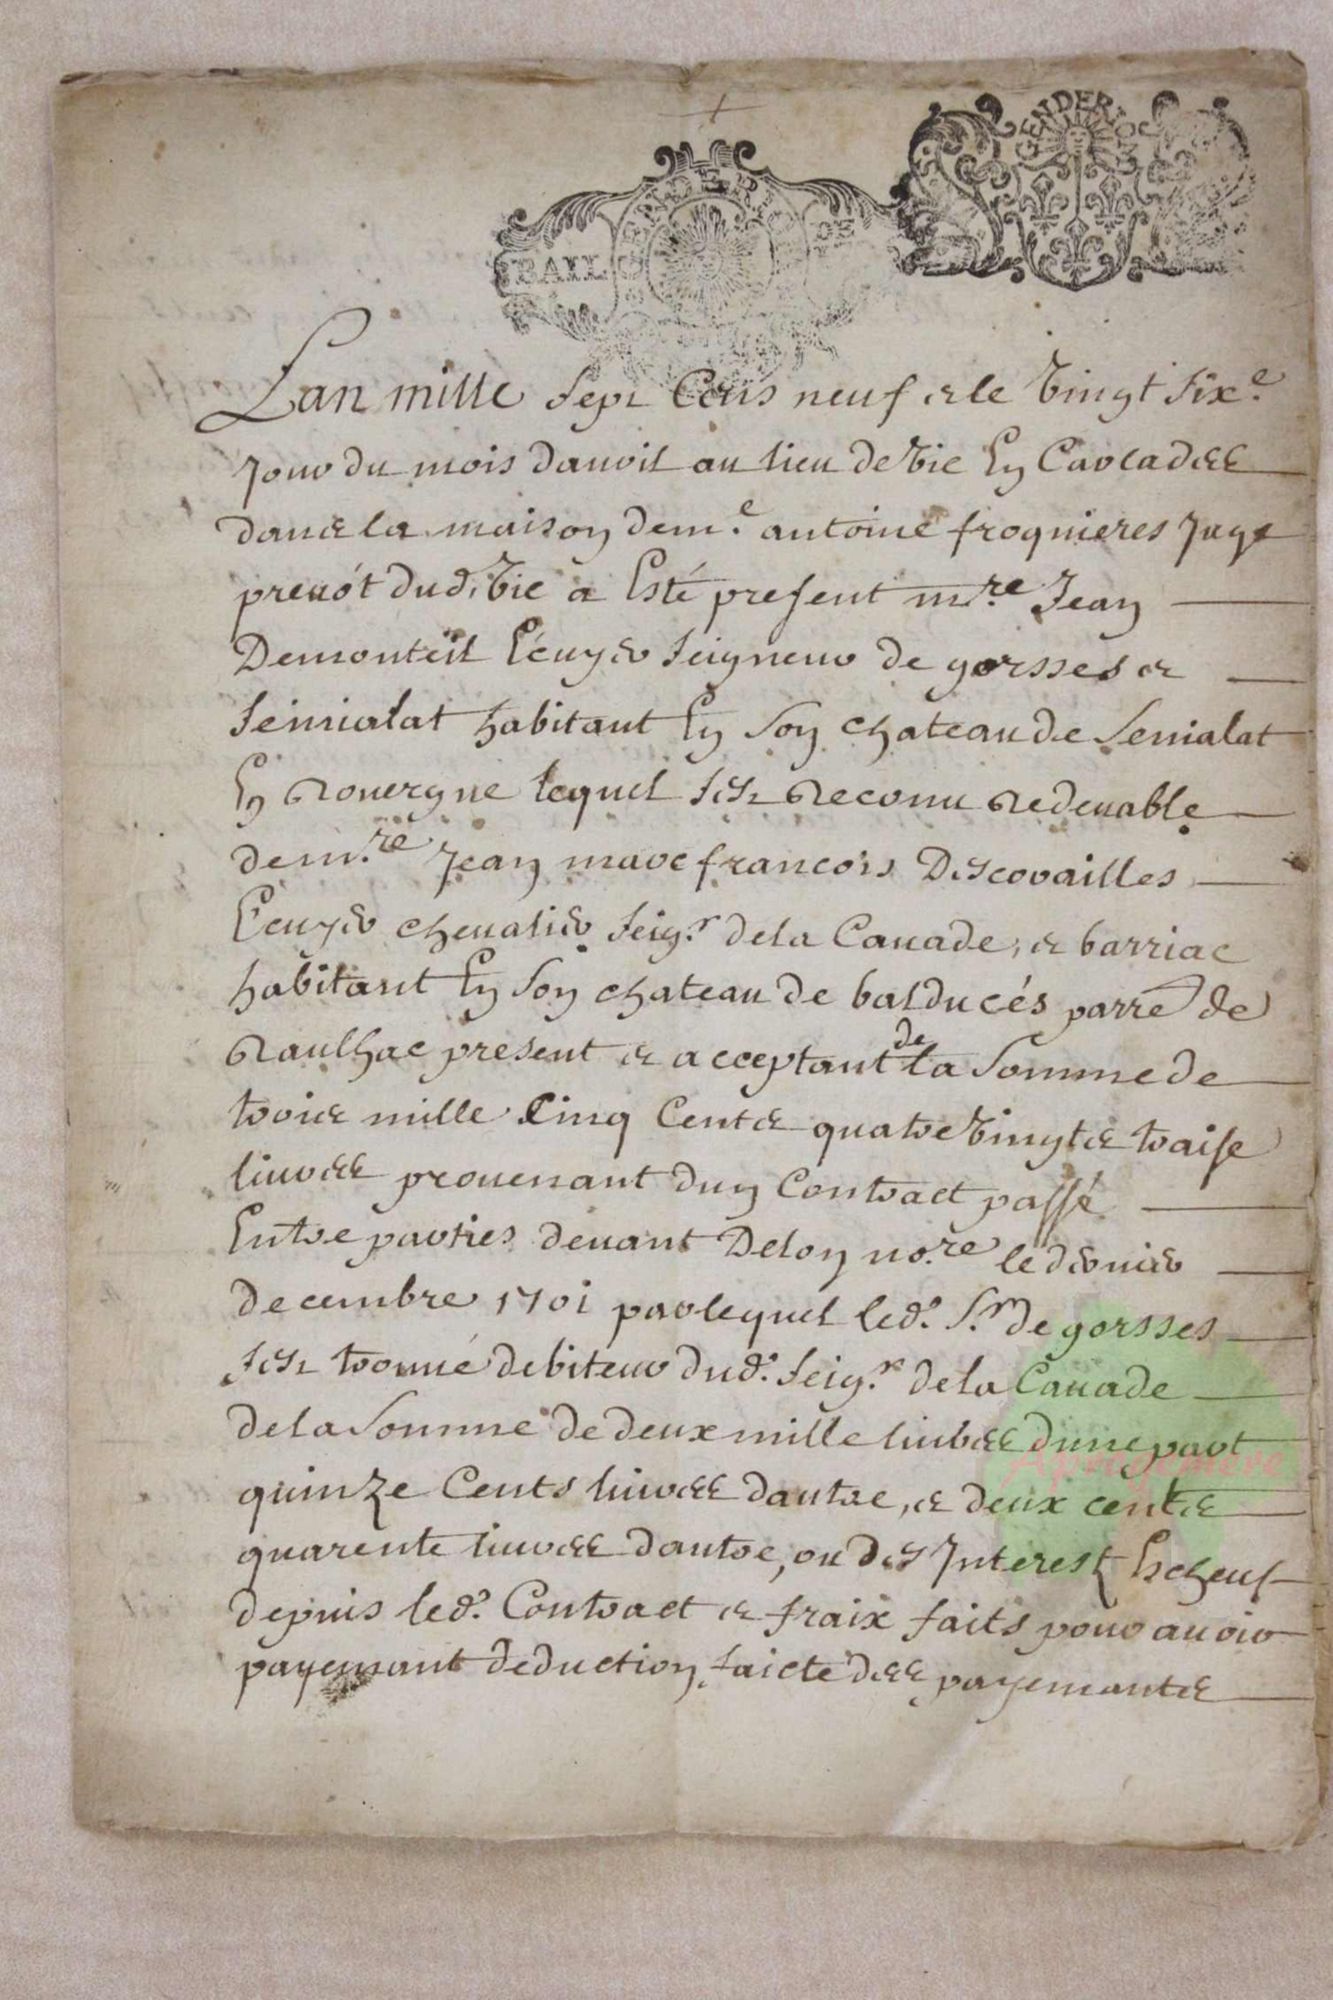 GENDERIOM
GENDERIO DE
BAIL
Lan mille sept Cens neuf & le vingt sixe
Jour du mois dauril au lieu de Vic En Carlades
dans la maison de me antoine froquieres Juge
preuót dud. Vic a Esté present mre Jean
Demonteil Ecuyer Seigneur de gorsses &
Senialat habitant En Son chateau de Senialat
En Rouergue lequel sest Reconu Redeuable
de mre Jean marc francois Descorailles
Ecuyer cheualier Seigr de la Cauade, & barriac
habitant En Son chateau de balducés parre de
Raulhac present & acceptant de la Somme de
trois mille Cinq Cents quatre vingts traise
liures prouenant dun Contract passé
Entre parties deuant Delon nore le dernier
decembre 1701 par lequel led. Sr de gorsses
sest trouué debiteur dud. Seigr de la Cauade
de la Somme de deux mille liures dune part
quinze Cents liures dautre, & deux cents
quarente liures dautre, ou des Interest Echeus
depuis led. Contract & fraix faits pour auoir
payemant deduction faicte des payemants
Aprogemere